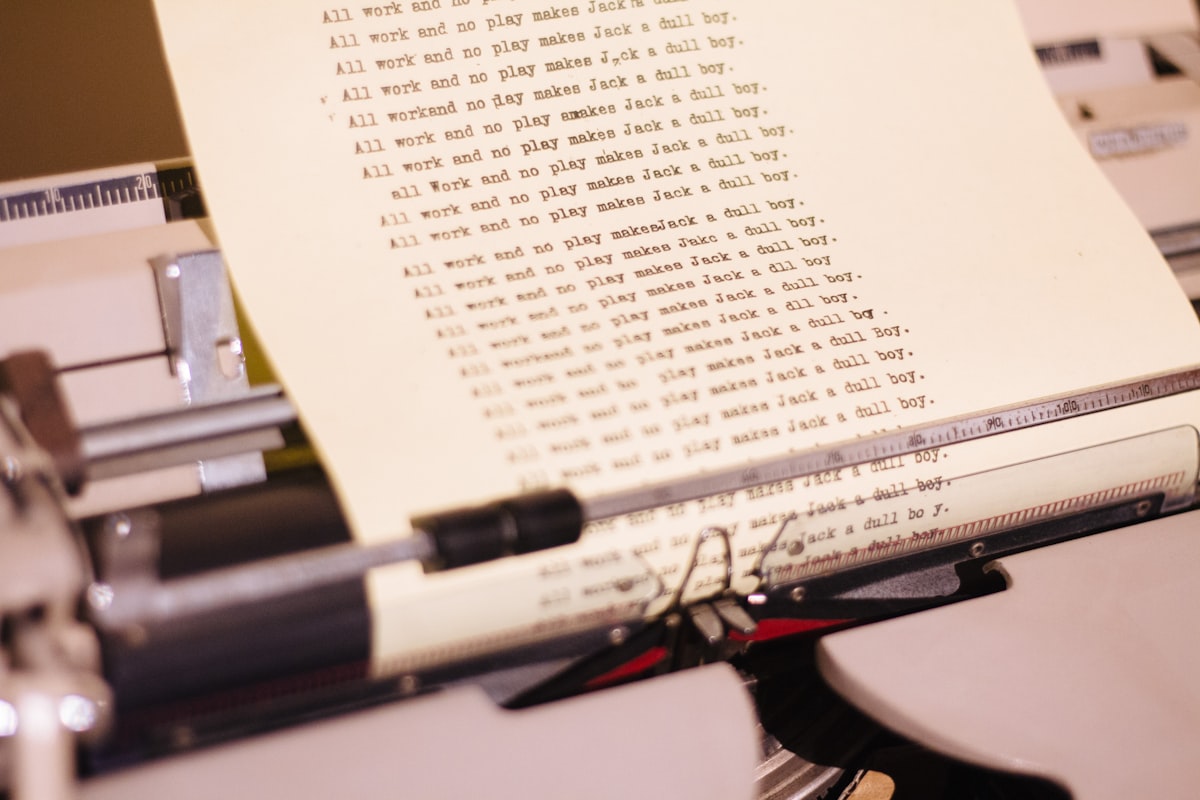 All work and no
All work and no play makes Jack a dull
All work and no play makes Jack a dull boy.
All work and no play makes J,ck a dull boy.
All workand no lay makes Jack a dull boy.
All work and no play amakes Jack a dull boy.
All work and no play makes Jack a dull boy.
all Work and no play makes Jack a dull boy.
All work and no play makes Jack a dull boy.
All work and no play makes Jack a dull boy.
All work and no play makesJack a dull boy.
All work and no play makes Jakc a dull boy.
All work and no play makes Jack a dull boy.
All work and no play makes Jack a dll boy
All work and no play makes Jack a dull boy.
All workand no play makes Jack a dll boy.
All work and no play makes Jack a dull
All work and no play makes Jack a dull Boy.
All work and no play makes Jack a dull boy.
All work and no play makes Jack a dull boy.
All work and no play makes Jack a dull boy.
play makes Jack a dull boy.
and no play makes Jack a dull boy.
All work and no play makes Jack a dull bo y.
All work and no play makes Jack a dull boy.
10 20
70 80 90 100 110